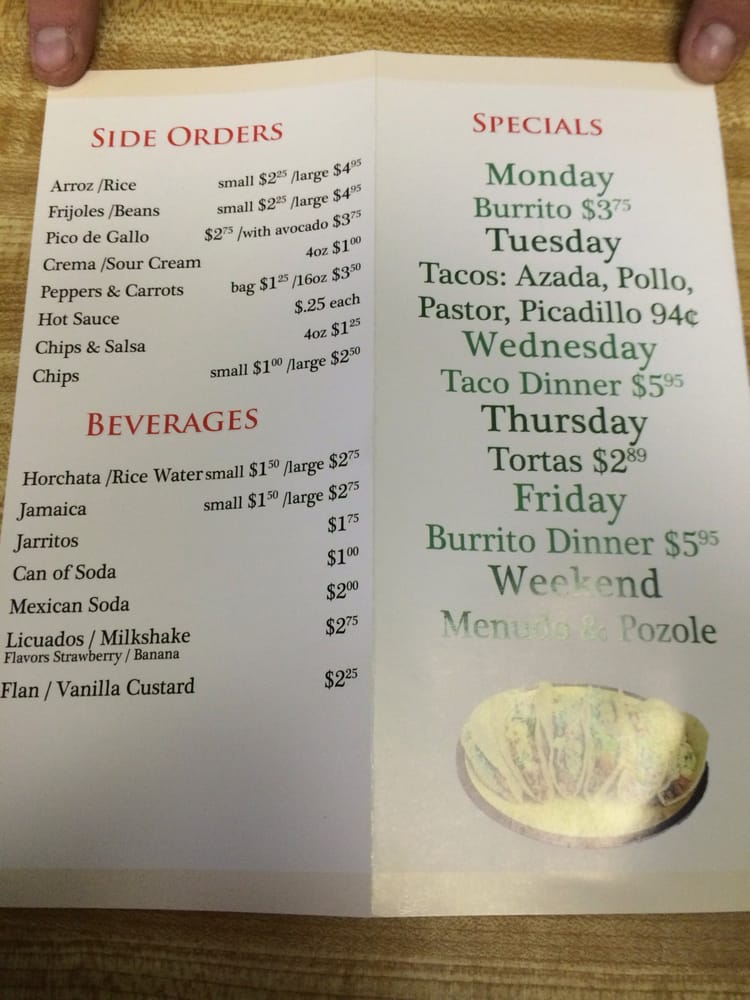 SIDE ORDERS
Arroz /Rice small $2.25 /large $4.95
Frijoles /Beans small $2.25 /large $4.95
Pico de Gallo $2.75 /with avocado $3.75
Crema /Sour Cream 4oz $1.00
Peppers & Carrots bag $1.25 /16oz $3.50
Hot Sauce $.25 each
Chips & Salsa 4oz $1.25
Chips small $1.00 /large $2.50
BEVERAGES
Horchata /Rice Water small $1.50 /large $2.75
Jamaica small $1.50 /large $2.75
Jarritos $1.75
Can of Soda $1.00
Mexican Soda $2.00
Licuados / Milkshake $2.75
Flavors Strawberry / Banana
Flan / Vanilla Custard $2.25
SPECIALS
Monday
Burrito $3.75
Tuesday
Tacos: Azada, Pollo,
Pastor, Picadillo 94¢
Wednesday
Taco Dinner $5.95
Thursday
Tortas $2.89
Friday
Burrito Dinner $5.95
Weekend
Menudo & Pozole